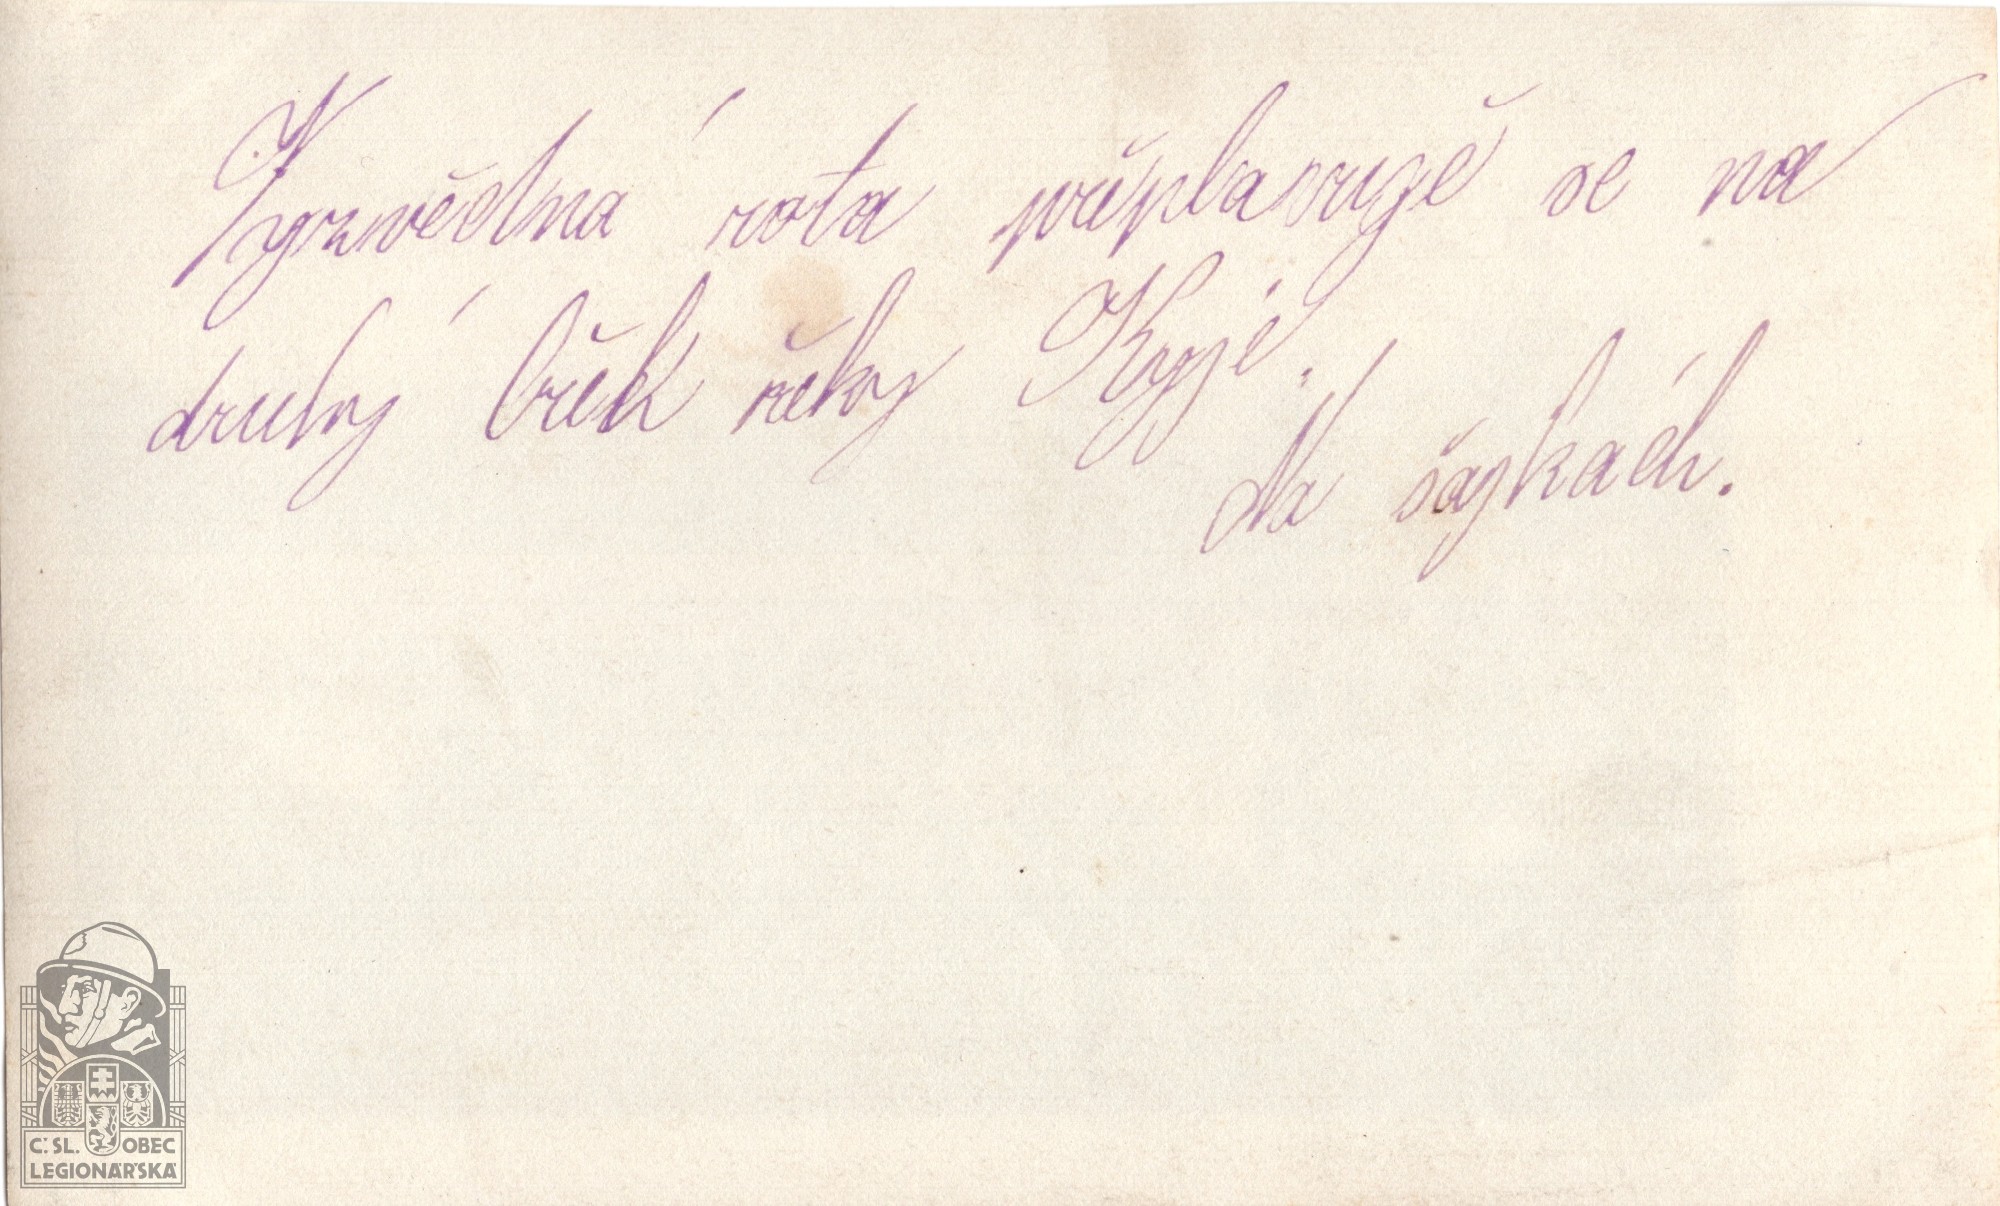 Vyzvědná rota přeplavuje se na
druhý břeh řeky Kyje.
Na šajkách.
Č.SL. OBEC
LEGIONÁŘSKÁ